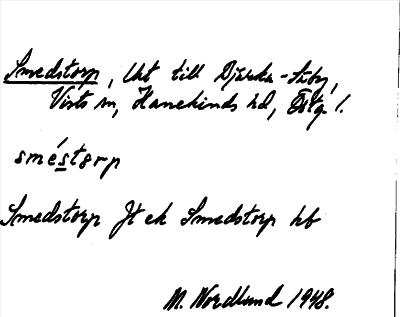 Smedstorp, Uht till Djurkälla-Säby,
Västra sn, Hanekinds hd, Östg. l.
sméstərp
Smedstorp Jt ek Smedstorp hb
N. Nordlund 1948.